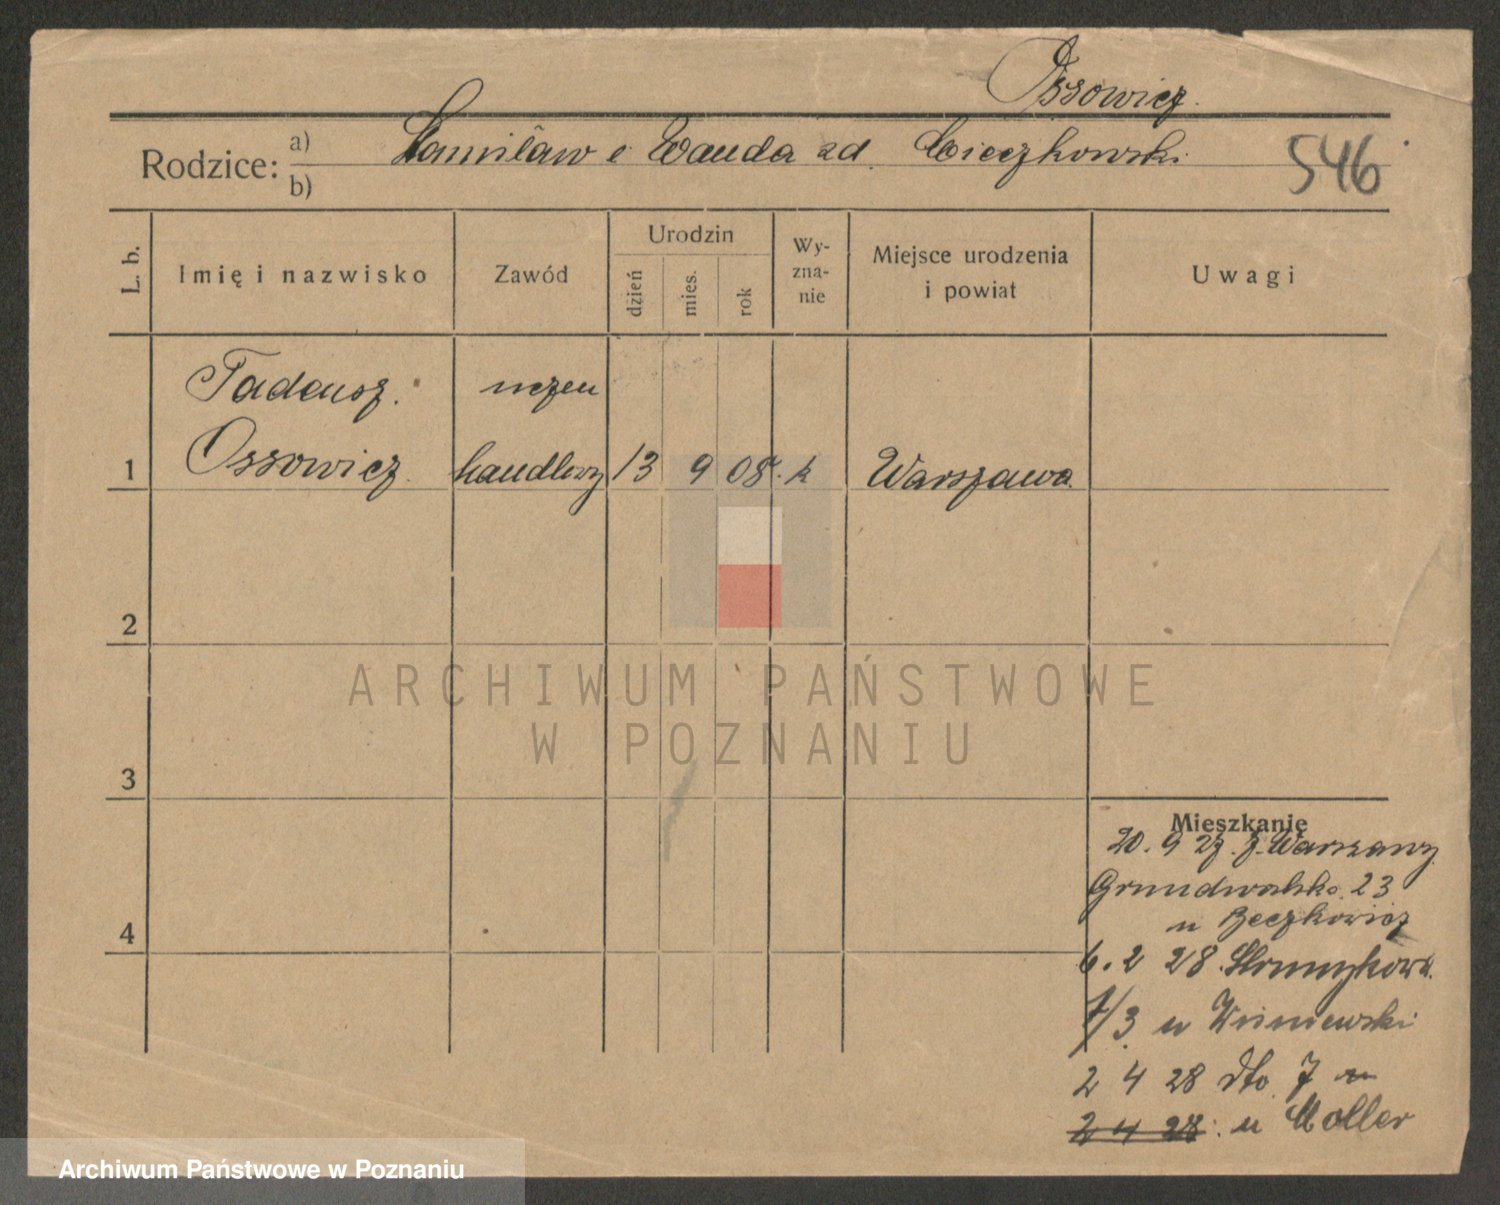 Ossowicz.
Rodzice: a) b) Stanisław i Wanda zd. Cieczkowski
546
L. b.
Imię i nazwisko
Zawód
Urodzin
dzień
mies.
rok
Wy-
zna-
nie
Miejsce urodzenia
i powiat
Uwagi
Tadeusz. uczeń
1 Ossowicz. handlowy 13 9 08. k Warszawa
2
ARCHIWUM PAŃSTWOWE
W POZNANIU
3
Mieszkanie
20. 9 27. z Warszawy
Grunwaldzka 23
4
u Beczkowicz
6. 2 28.
u Wiśniewski
2 4 28 dto. 7
2 4 28. u Moller
Archiwum Państwowe w Poznaniu